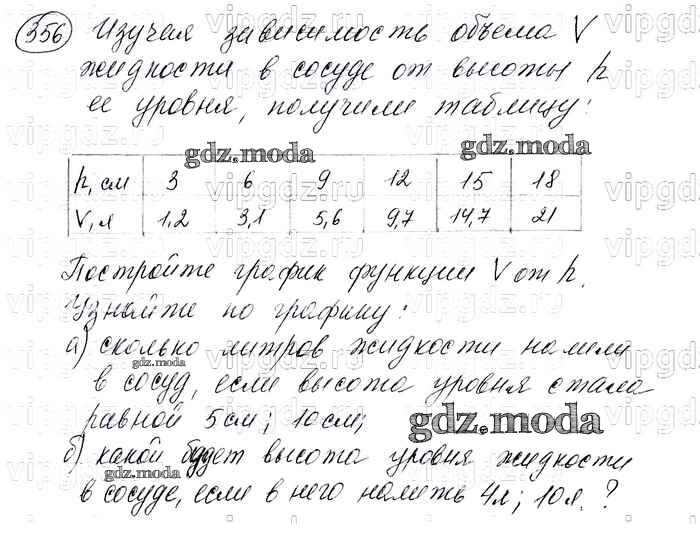 356 Изучая зависимость объема V
жидкости в сосуде от высоты h
ее уровня, получили таблицу:
h, см 3 6 9 12 15 18
V, л 1,2 3,1 5,6 9,7 14,7 21
Постройте график функции V от h.
Узнайте по графику:
а) сколько литров жидкости налили
в сосуд, если высота уровня стала
равной 5 см; 10 см;
б) какой будет высота уровня жидкости
в сосуде, если в него налить 4 л; 10 л.?
gdz.moda
gdz.moda
gdz.moda
gdz.moda
gdz.moda
vipgdz.ru